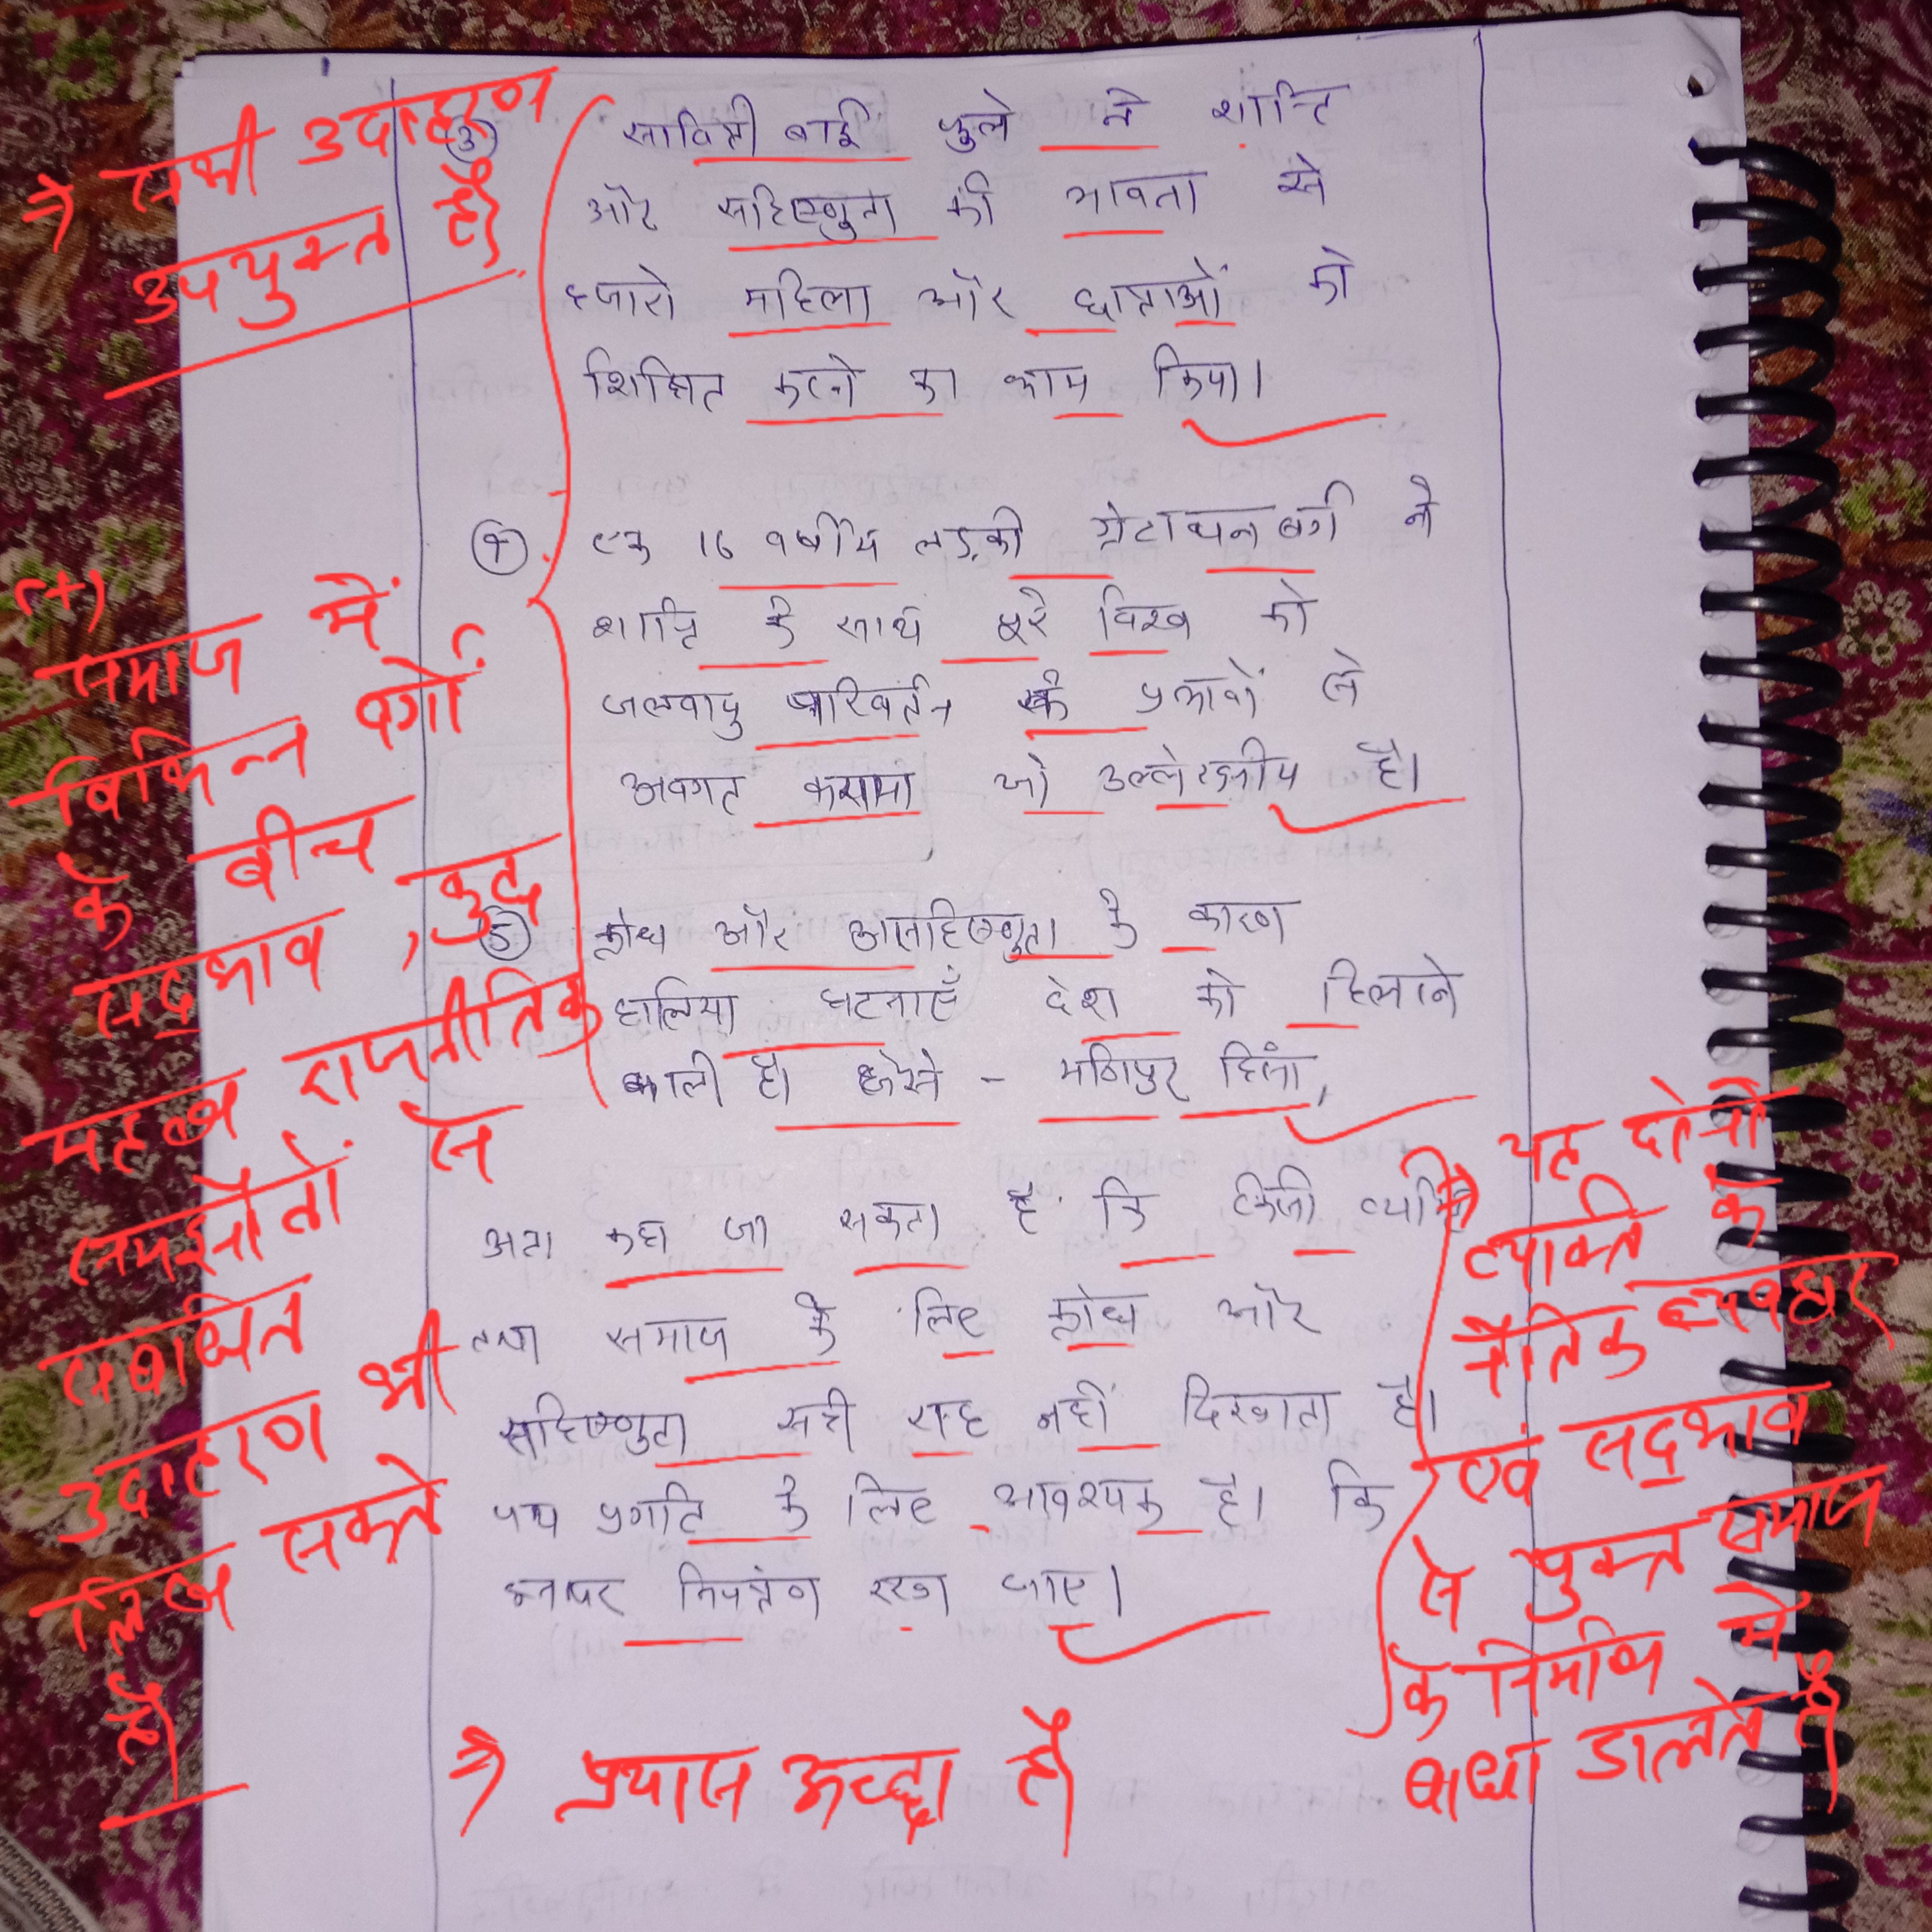 ⇒ सभी उदाहरण
उपयुक्त है।
③ सावित्री बाई फुले ने शान्ति
और सहिष्णुता की भावना से
हजारो महिला और छात्राओं को
शिक्षित करने का काम किया।
④. एक 16 वर्षीय लड़की ग्रेटाथनबर्ग ने
शान्ति के साथ पूरे विश्व को
जलवायु परिवर्तन के प्रभावों से
अवगत कराया जो उल्लेखनीय है।
⑤ क्रोध और असहिष्णुता के कारण
हालिया घटनाएँ देश को हिलाने
वाली है। जैसे - मणिपुर हिंसा,
अतः कहा जा सकता है कि किसी व्यक्ति
तथा समाज के लिए क्रोध और
सहिष्णुता सही राह नहीं दिखाता है।
प्रगति के लिए आवश्यक है। कि
नियंत्रण रखा जाए।
(+)
समाज में
विभिन्न वर्गों
के बीच
सद्भाव, युद्ध
महत्व राजनीतिक
समझौतों से
संबंधित
उदाहरण भी
लिख सकते
है।
⇒ यह दोनों
व्यक्ति के
नैतिक व्यवहार
एवं सद्भाव
से युक्त समाज
के निर्माण में
बाधा डालते है
⇒ प्रयास अच्छा है।